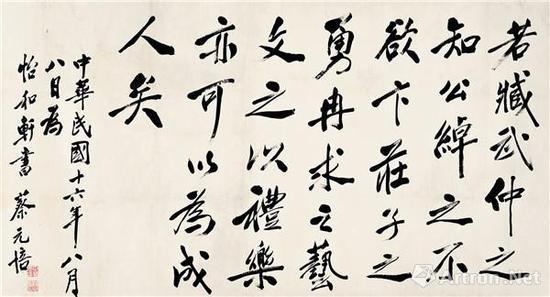 若臧武仲之
知公綽之不
欲卞莊子之
勇冉求之藝
文之以禮樂
亦可以為成
人矣
中華民國十六年八月
八日為
怡和軒書 蔡元培
Artron.Net